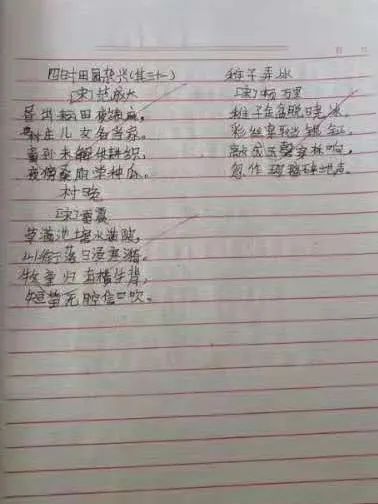 四时田园杂兴(其三十一)
[宋]范成大
昼出耘田夜绩麻,
村庄儿女各当家。
童孙未解供耕织,
夜傍桑阴学种瓜。
村晚
[宋]雷震
草满池塘水满陂,
山衔落日浸寒漪。
牧童归去横牛背,
短笛无腔信口吹。
稚子弄冰
[宋]杨万里
稚子金盆脱晓冰,
彩丝穿取银钲。
敲成玉磬穿林响,
忽作玻璃碎地声。